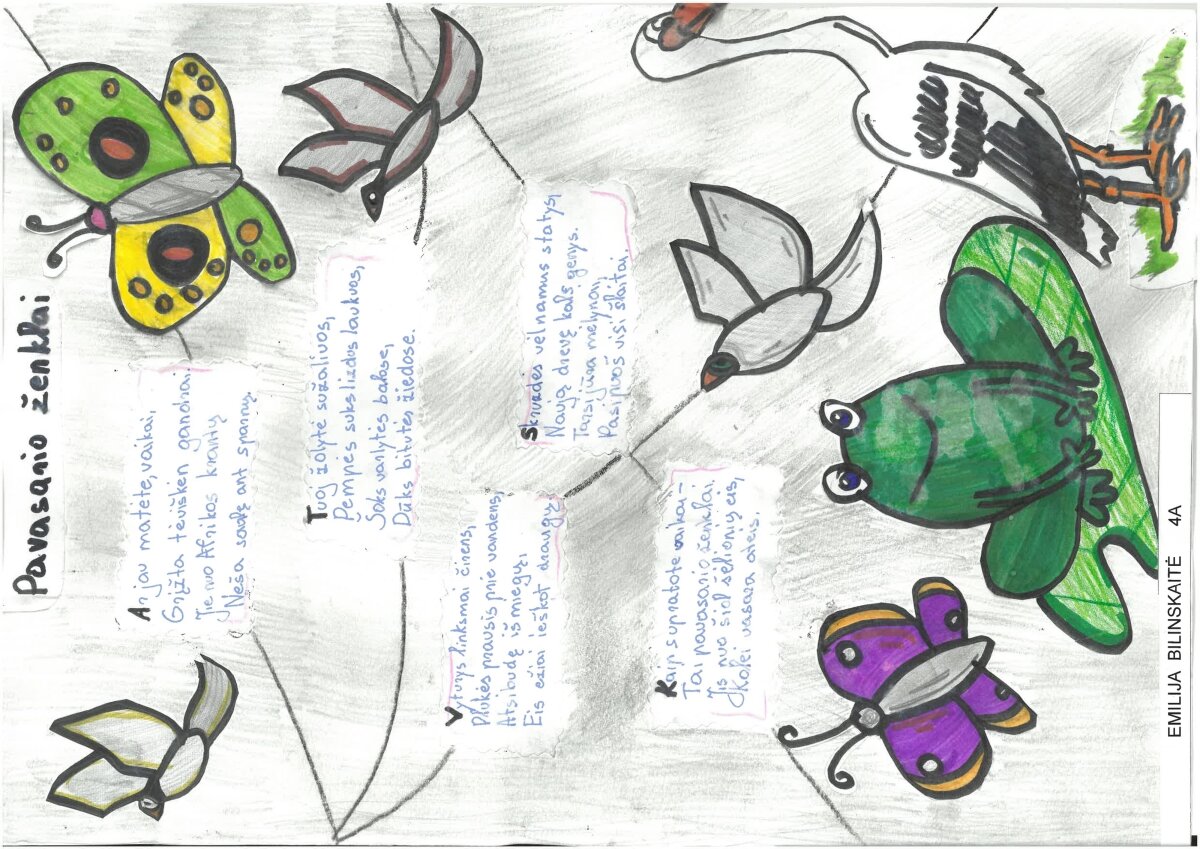 Pavasario ženklai
Ar jau matėte, vaikai,
Grįžta tėviškėn gandrai.
Jie nuo Afrikos krantų
Neša saulę ant sparnų
Tuoj žolytė sužaliuos,
Pempės suks lizdus laukuos,
Šoks varlytės balose,
Dūks bitutės žiedose.
Vyturys linksmai čirens,
Plukės prausis prie vandens,
Atsibudę iš miegų
Eis ežiai ieškot draugų
Skruzdės vėl namus statys,
Naują drevę kals genys.
Tarsi jūra mėlynai,
Pasipuoš visi šlaitai.
Kaip supraote vaikai-
Tai pavasario ženklai.
Jis nuo šiol eis,
Kolei vasara ateis.
EMILIJA BILINSKAITĖ 4A